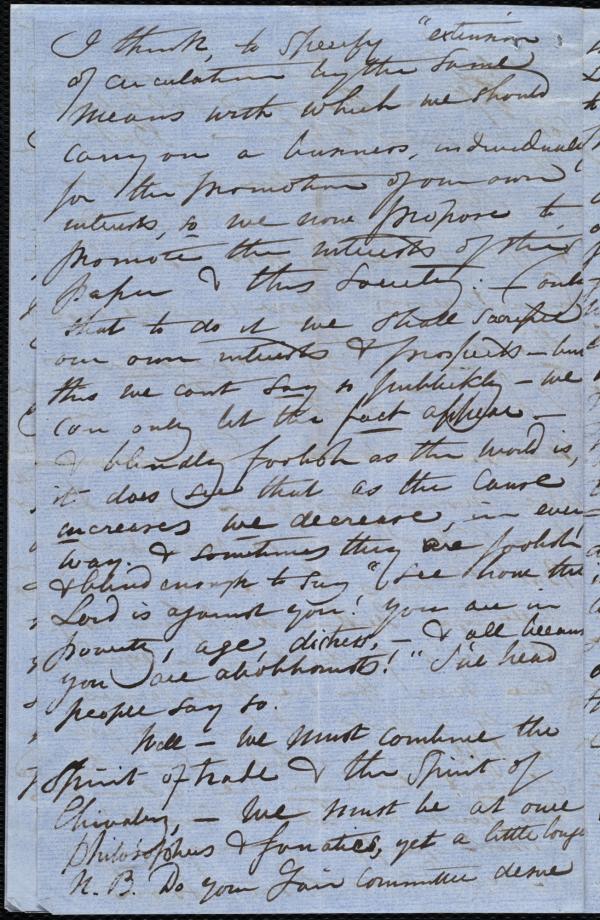 I think, to specify "extension
of circulation by the same
means with which we should
carry on a business, individually
for the promotion of our own
interests, so we now propose to
promote the interests of this
paper & this Society: — (only
that to do it we shall sacrifice
our own interests & prospects — but
this we cant say so publickly — we
can only let the fact appear —
& blindly foolish as the world is,
it does see that as the Cause
increases we decrease, in every
way. & sometimes they are foolish
& blind enough to say "See how the
Lord is against you! you are in
poverty, age, distress, — & all because
you are abolitionists!" I've heard
people say so.
Well — we must combine the
Spirit of trade & the Spirit of
Chivalry, — We must be at once
philosophers & fanatics, yet a little longer
N. B. Do your Fair Committee desire